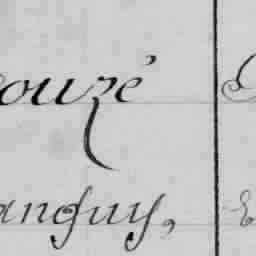 ouzé
anguy,